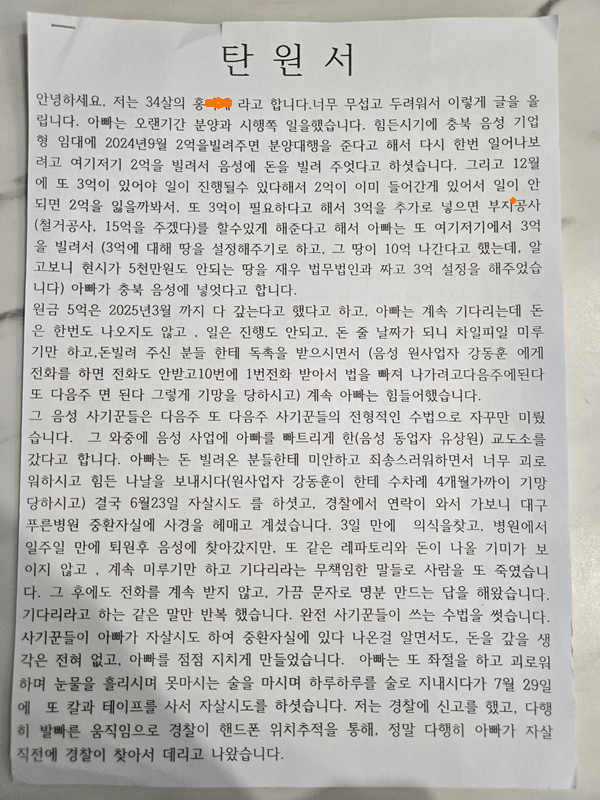 탄 원 서
안녕하세요, 저는 34살의 홍 라고 합니다.너무 무섭고 두려워서 이렇게 글을 올
립니다. 아빠는 오랜기간 분양과 시행쪽 일을했습니다. 힘든시기에 충북 음성 기업
형 임대에 2024년9월 2억을빌려주면 분양대행을 준다고 해서 다시 한번 일어나보
려고 여기저기 2억을 빌려서 음성에 돈을 빌려 주엇다고 하셧습니다. 그리고 12월
에 또 3억이 있어야 일이 진행될수 있다해서 2억이 이미 들어간게 있어서 일이 안
되면 2억을 잃을까봐서, 또 3억이 필요하다고 해서 3억을 추가로 넣으면 부지공사
(철거공사, 15억을 주겠다)를 할수있게 해준다고 해서 아빠는 또 여기저기에서 3억
을 빌려서 (3억에 대해 땅을 설정해주기로 하고, 그 땅이 10억 나간다고 했는데, 알
고보니 현시가 5천만원도 안되는 땅을 재우 법무법인과 짜고 3억 설정을 해주었습
니다) 아빠가 충북 음성에 넣엇다고 합니다.
원금 5억은 2025년3월 까지 다 갚는다고 했다고 하고, 아빠는 계속 기다리는데 돈
은 한번도 나오지도 않고 , 일은 진행도 안되고, 돈 줄 날짜가 되니 차일피일 미루
기만 하고,돈빌려 주신 분들 한테 독촉을 받으시면서 (음성 원사업자 강동훈 에게
전화를 하면 전화도 안받고10번에 1번전화 받아서 법을 빠져 나가려고다음주에된다
또 다음주 면 된다 그렇게 기망을 당하시고) 계속 아빠는 힘들어했습니다.
그 음성 사기꾼들은 다음주 또 다음주 사기꾼들의 전형적인 수법으로 자꾸만 미뤘
습니다. 그 와중에 음성 사업에 아빠를 빠트리게 한(음성 동업자 유상원) 교도소를
갔다고 합니다. 아빠는 돈 빌려온 분들한테 미안하고 죄송스러워하면서 너무 괴로
워하시고 힘든 나날을 보내시다(원사업자 강동훈이 한테 수차례 4개월가까이 기망
당하시고) 결국 6월23일 자살시도 를 하셧고, 경찰에서 연락이 와서 가보니 대구
푸른병원 중환자실에 사경을 헤매고 계셨습니다. 3일 만에 의식을찾고, 병원에서
일주일 만에 퇴원후 음성에 찾아갔지만, 또 같은 레파토리와 돈이 나올 기미가 보
이지 않고 , 계속 미루기만 하고 기다리라는 무책임한 말들로 사람을 또 죽였습니
다. 그 후에도 전화를 계속 받지 않고, 가끔 문자로 명분 만드는 답을 해왔습니다.
기다리라고 하는 같은 말만 반복 했습니다. 완전 사기꾼들이 쓰는 수법을 썻습니다.
사기꾼들이 아빠가 자살시도 하여 중환자실에 있다 나온걸 알면서도, 돈을 갚을 생
각은 전혀 없고, 아빠를 점점 지치게 만들었습니다. 아빠는 또 좌절을 하고 괴로워
하며 눈물을 흘리시며 못마시는 술을 마시며 하루하루를 술로 지내시다가 7월 29일
에 또 칼과 테이프를 사서 자살시도를 하셧습니다. 저는 경찰에 신고를 했고, 다행
히 발빠른 움직임으로 경찰이 핸드폰 위치추적을 통해, 정말 다행히 아빠가 자살
직전에 경찰이 찾아서 데리고 나왔습니다.